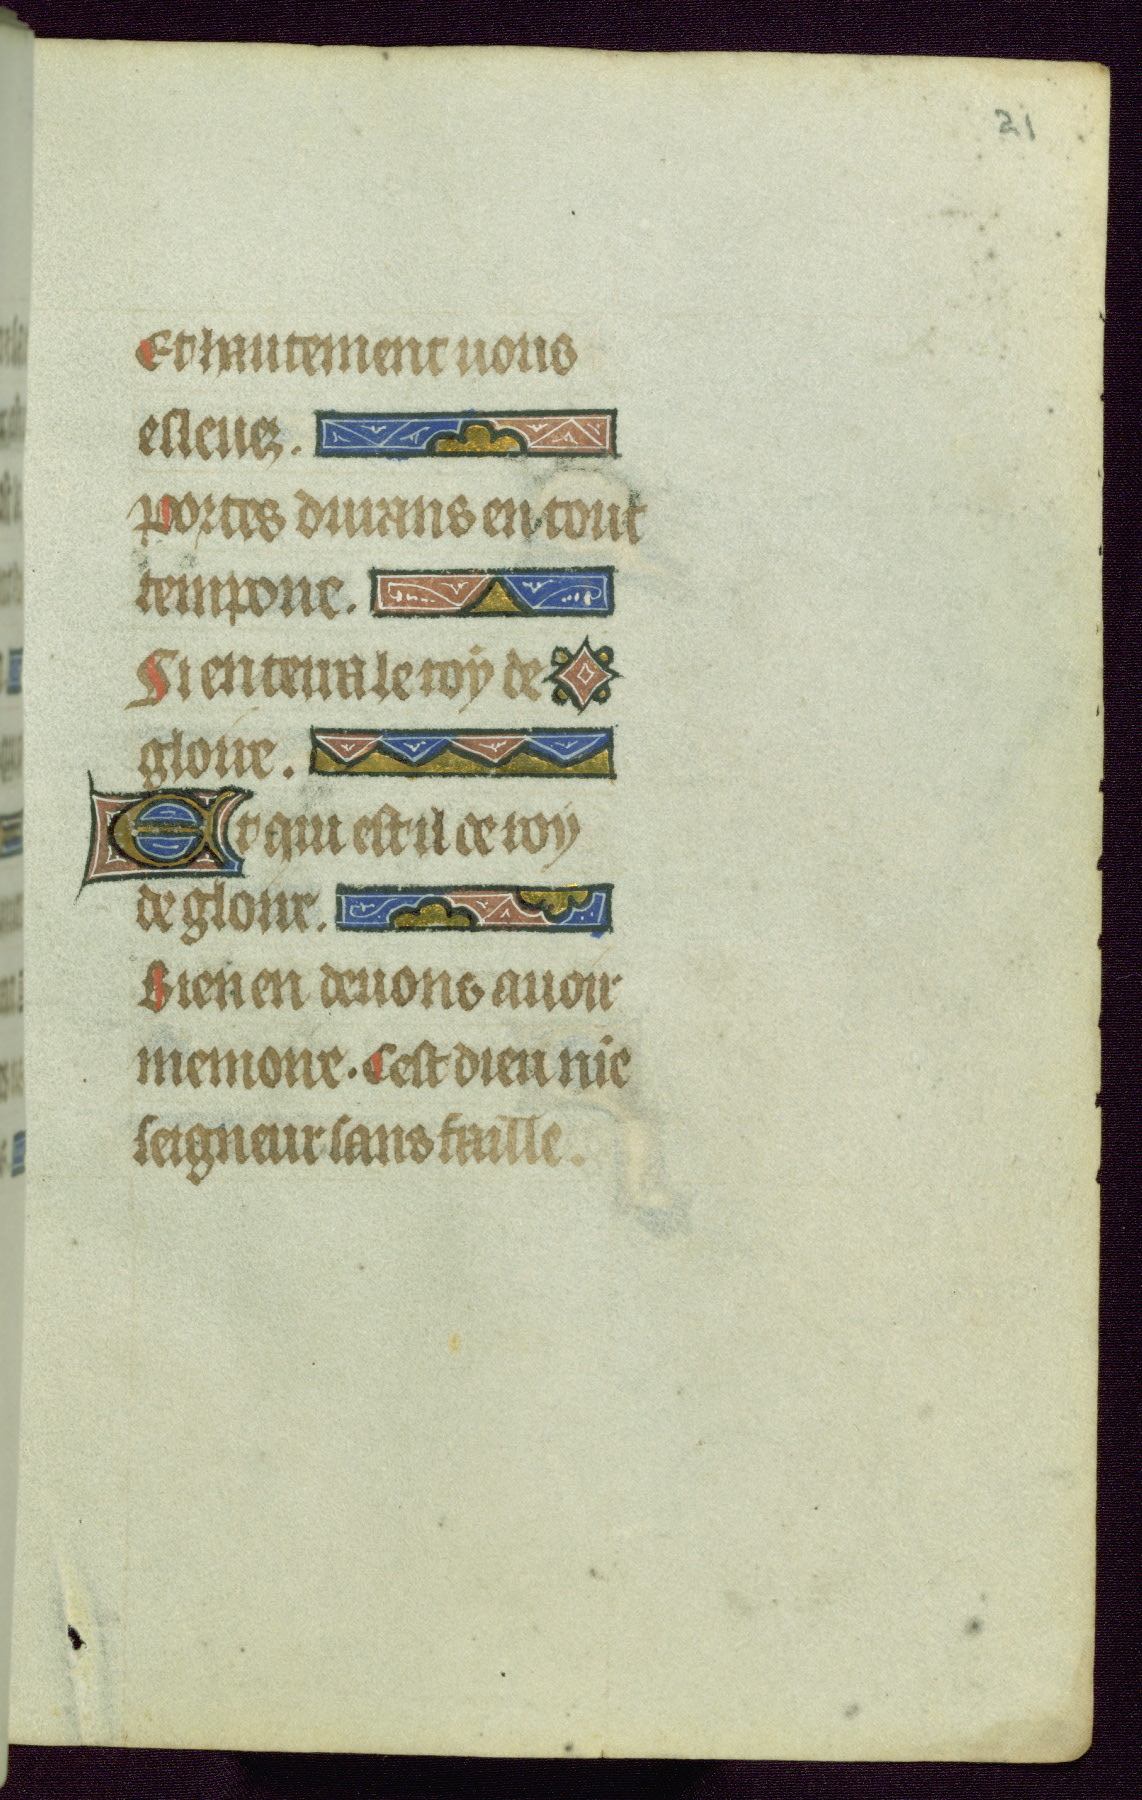 21
Et hautement uous
esleuez.
portes durans en tout
tempoire.
Si enterra le roy de
gloire.
Et qui est il ce roy
de gloire.
Bien en deuons auoir
memoire. Cest dieu nre
seigneur sans faille.